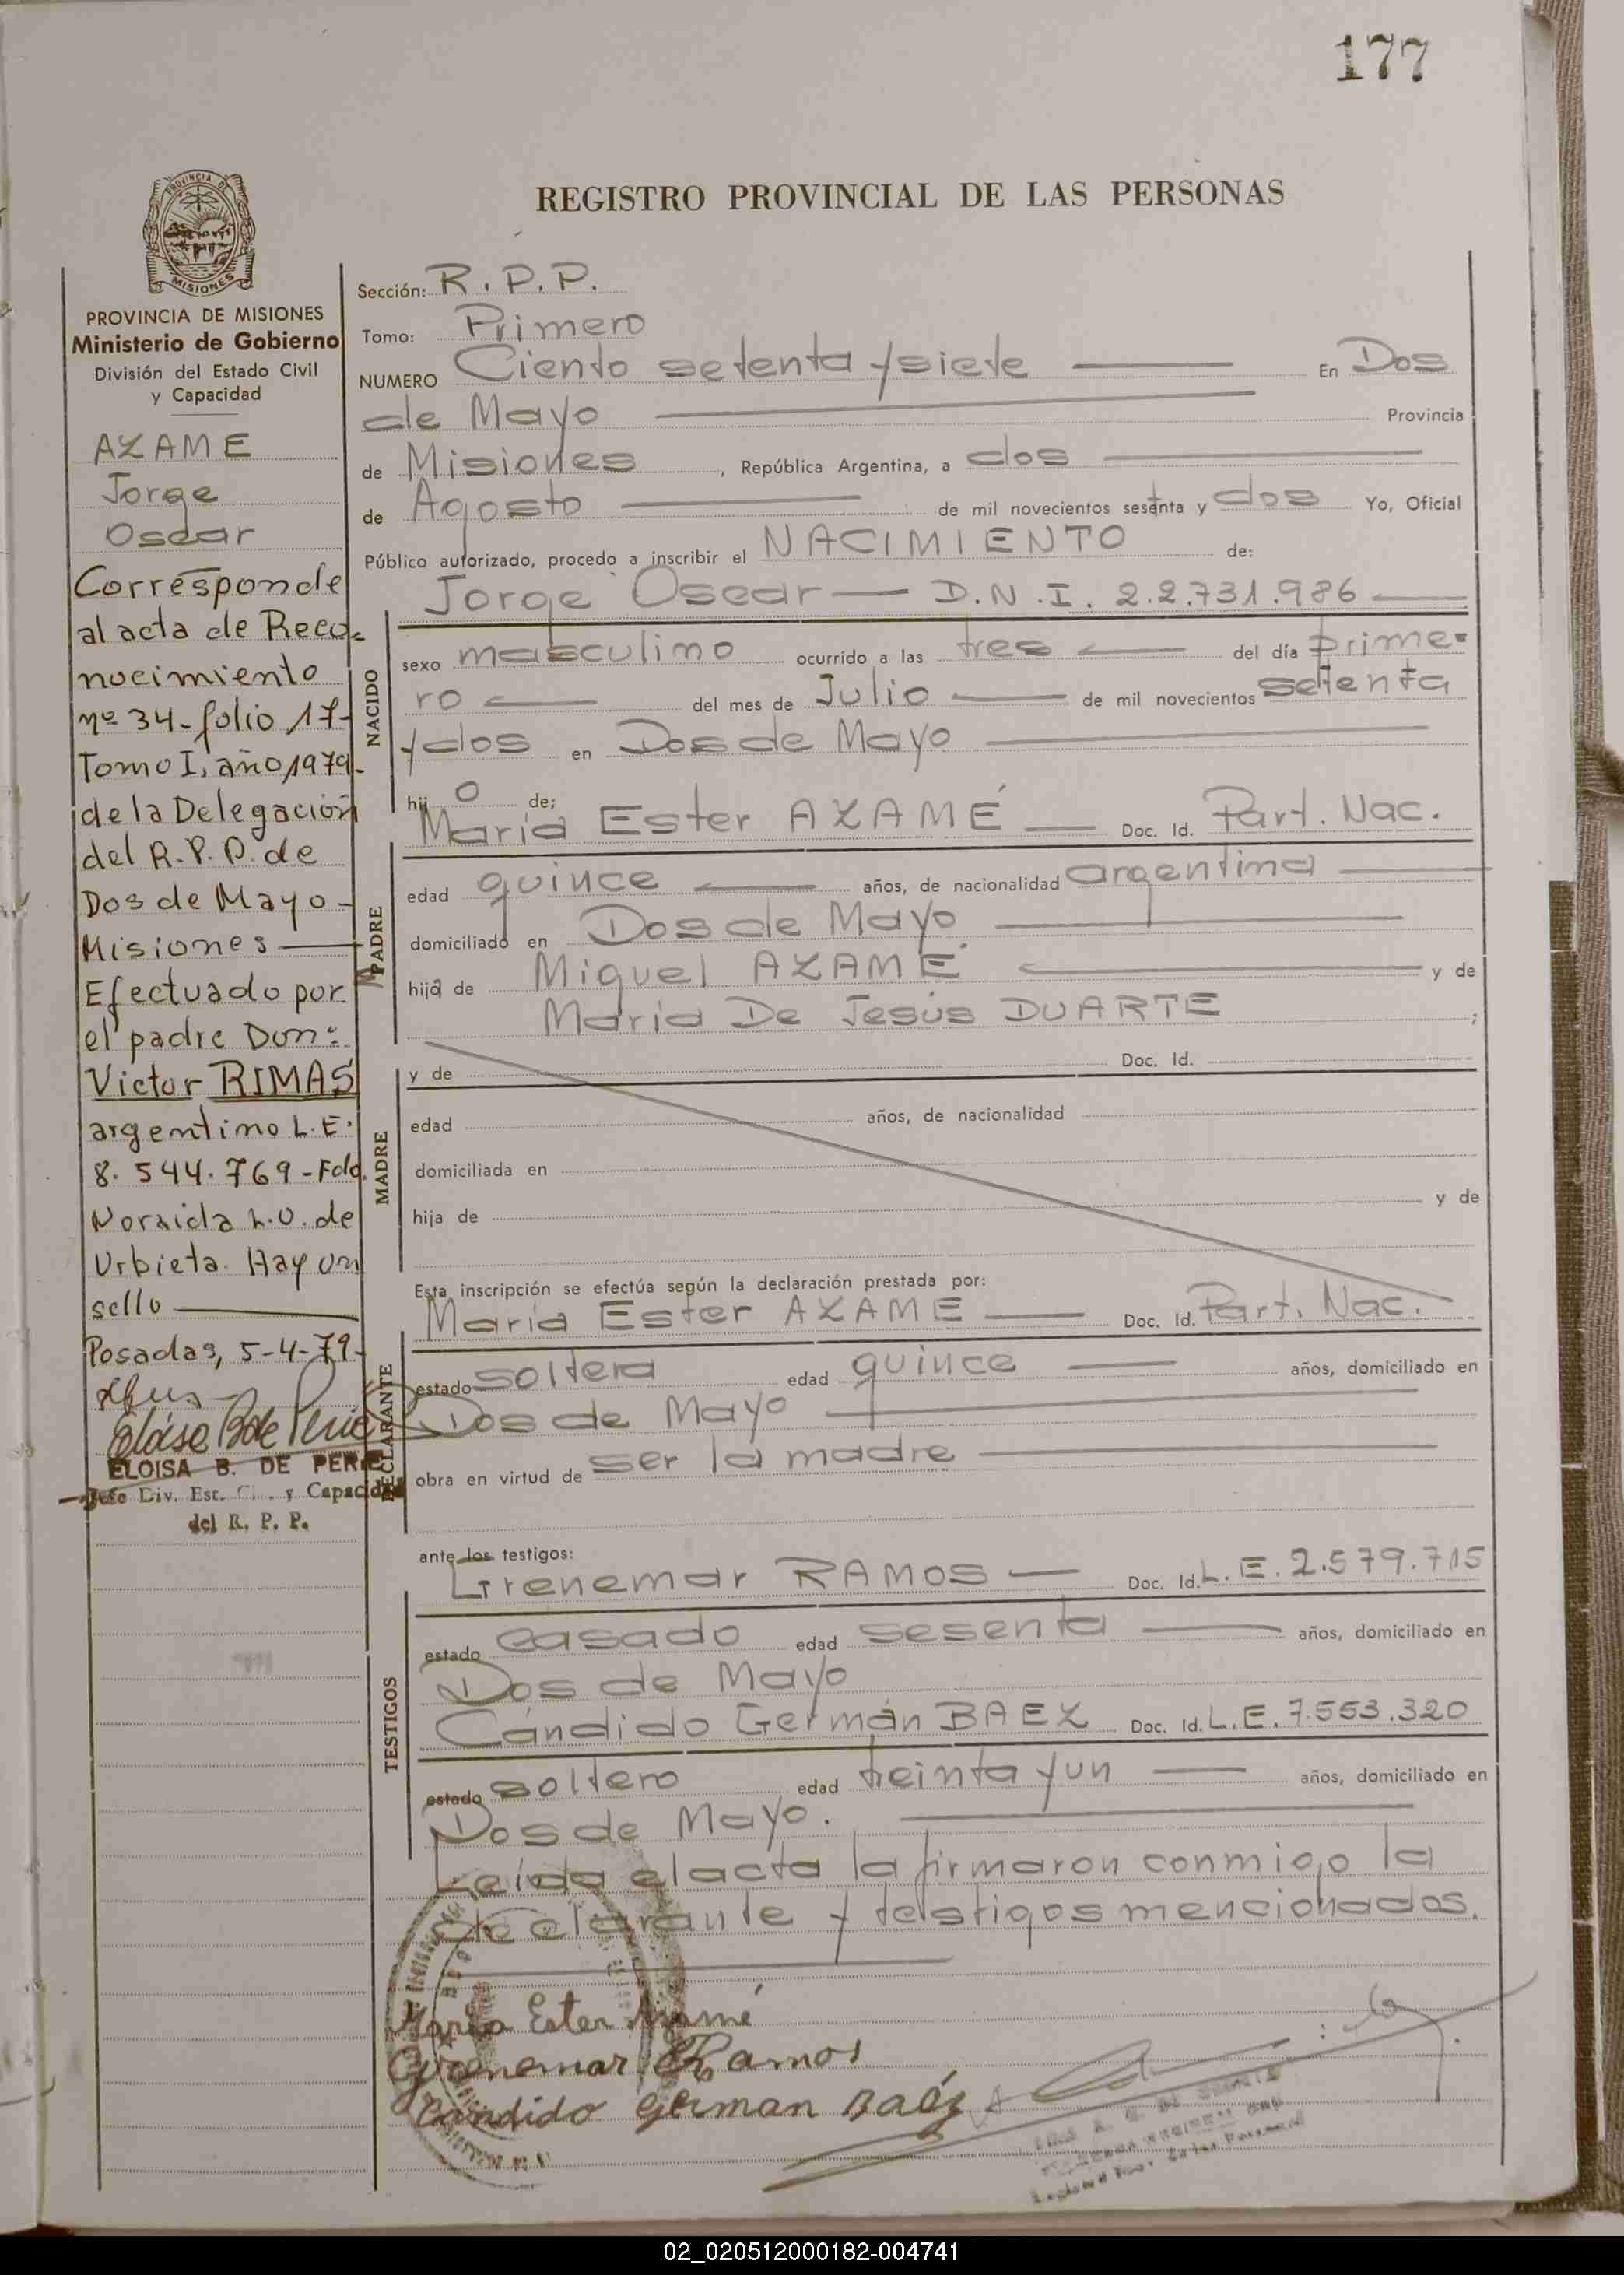 177
PROVINCIA DE
MISIONES
REGISTRO PROVINCIAL DE LAS PERSONAS
PROVINCIA DE MISIONES
Ministerio de Gobierno
División del Estado Civil
y Capacidad
AZAME
Jorge
Oscar
Corresponde
al acta de Reco-
nocimiento
nº 34-folio 17-
Tomo I, año 1979-
de la Delegación
del R.P.P. de
Dos de Mayo-
Misiones
Efectuado por
el padre Don:
Victor RIMAS
argentino L.E.
8.544.769-Fdo.
Noraida L.O. de
Urbieta. Hay un
sello
Posadas, 5-4-79-
ELOISA B. DE
Jefe Div. Est. y Capacidad
del R. P. P.
Sección: R.P.P.
Tomo: Primero
NUMERO Ciento setenta y siete En Dos
de Mayo Provincia
de Misiones, República Argentina, a dos
de Agosto de mil novecientos setenta y dos Yo, Oficial
Público autorizado, procedo a inscribir el NACIMIENTO de:
Jorge Oscar — D.N.I. 22.731.986
NACIDO
sexo masculino ocurrido a las tres del día prime-
ro del mes de Julio de mil novecientos setenta
y dos en Dos de Mayo
hijo de;
María Ester AZAMÉ Doc. Id. Part. Nac.
MADRE
edad quince años, de nacionalidad argentina
domiciliado en Dos de Mayo
hija de Miguel AZAMÉ y de
María De Jesús DUARTE ;
y de Doc. Id.
MADRE
edad años, de nacionalidad
domiciliada en
hija de y de
Esta inscripción se efectúa según la declaración prestada por:
María Ester AZAMÉ Doc. Id. Part. Nac.
DECLARANTE
estado soltera edad quince años, domiciliado en
Dos de Mayo
obra en virtud de ser la madre
ante los testigos:
Grenemar RAMOS — Doc. Id. L.E. 2.579.715
TESTIGOS
estado casado edad sesenta años, domiciliado en
Dos de Mayo
Cándido Germán BAEZ Doc. Id. L.E. 7.553.320
estado soltero edad treinta y un años, domiciliado en
Dos de Mayo.
Leída el acta la firmaron conmigo la
declarante y testigos mencionados.
María Ester Azamé
Grenemar Ramos
Candido German Baéz
02_020512000182-004741